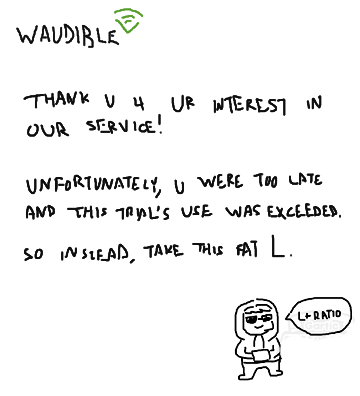 WAUDIBLE
THANK U 4 UR INTEREST IN
OUR SERVICE!
UNFORTUNATELY, U WERE TOO LATE
AND THIS TRIAL'S USE WAS EXCEEDED.
SO INSTEAD, TAKE THIS FAT L.
L+RATIO